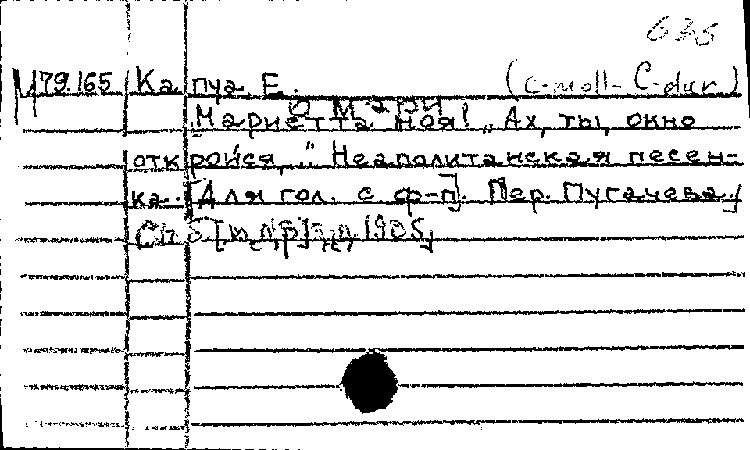 635
М79.165 Капуа, Е. (c-moll-C-dur)
О Мари!
Мариетта моя! „Ах, ты, окно
откройся,..." Неаполитанская песен-
ка. [Для гол. с ф-п]. Пер. Пугачева,
Спб [ю, 1905,